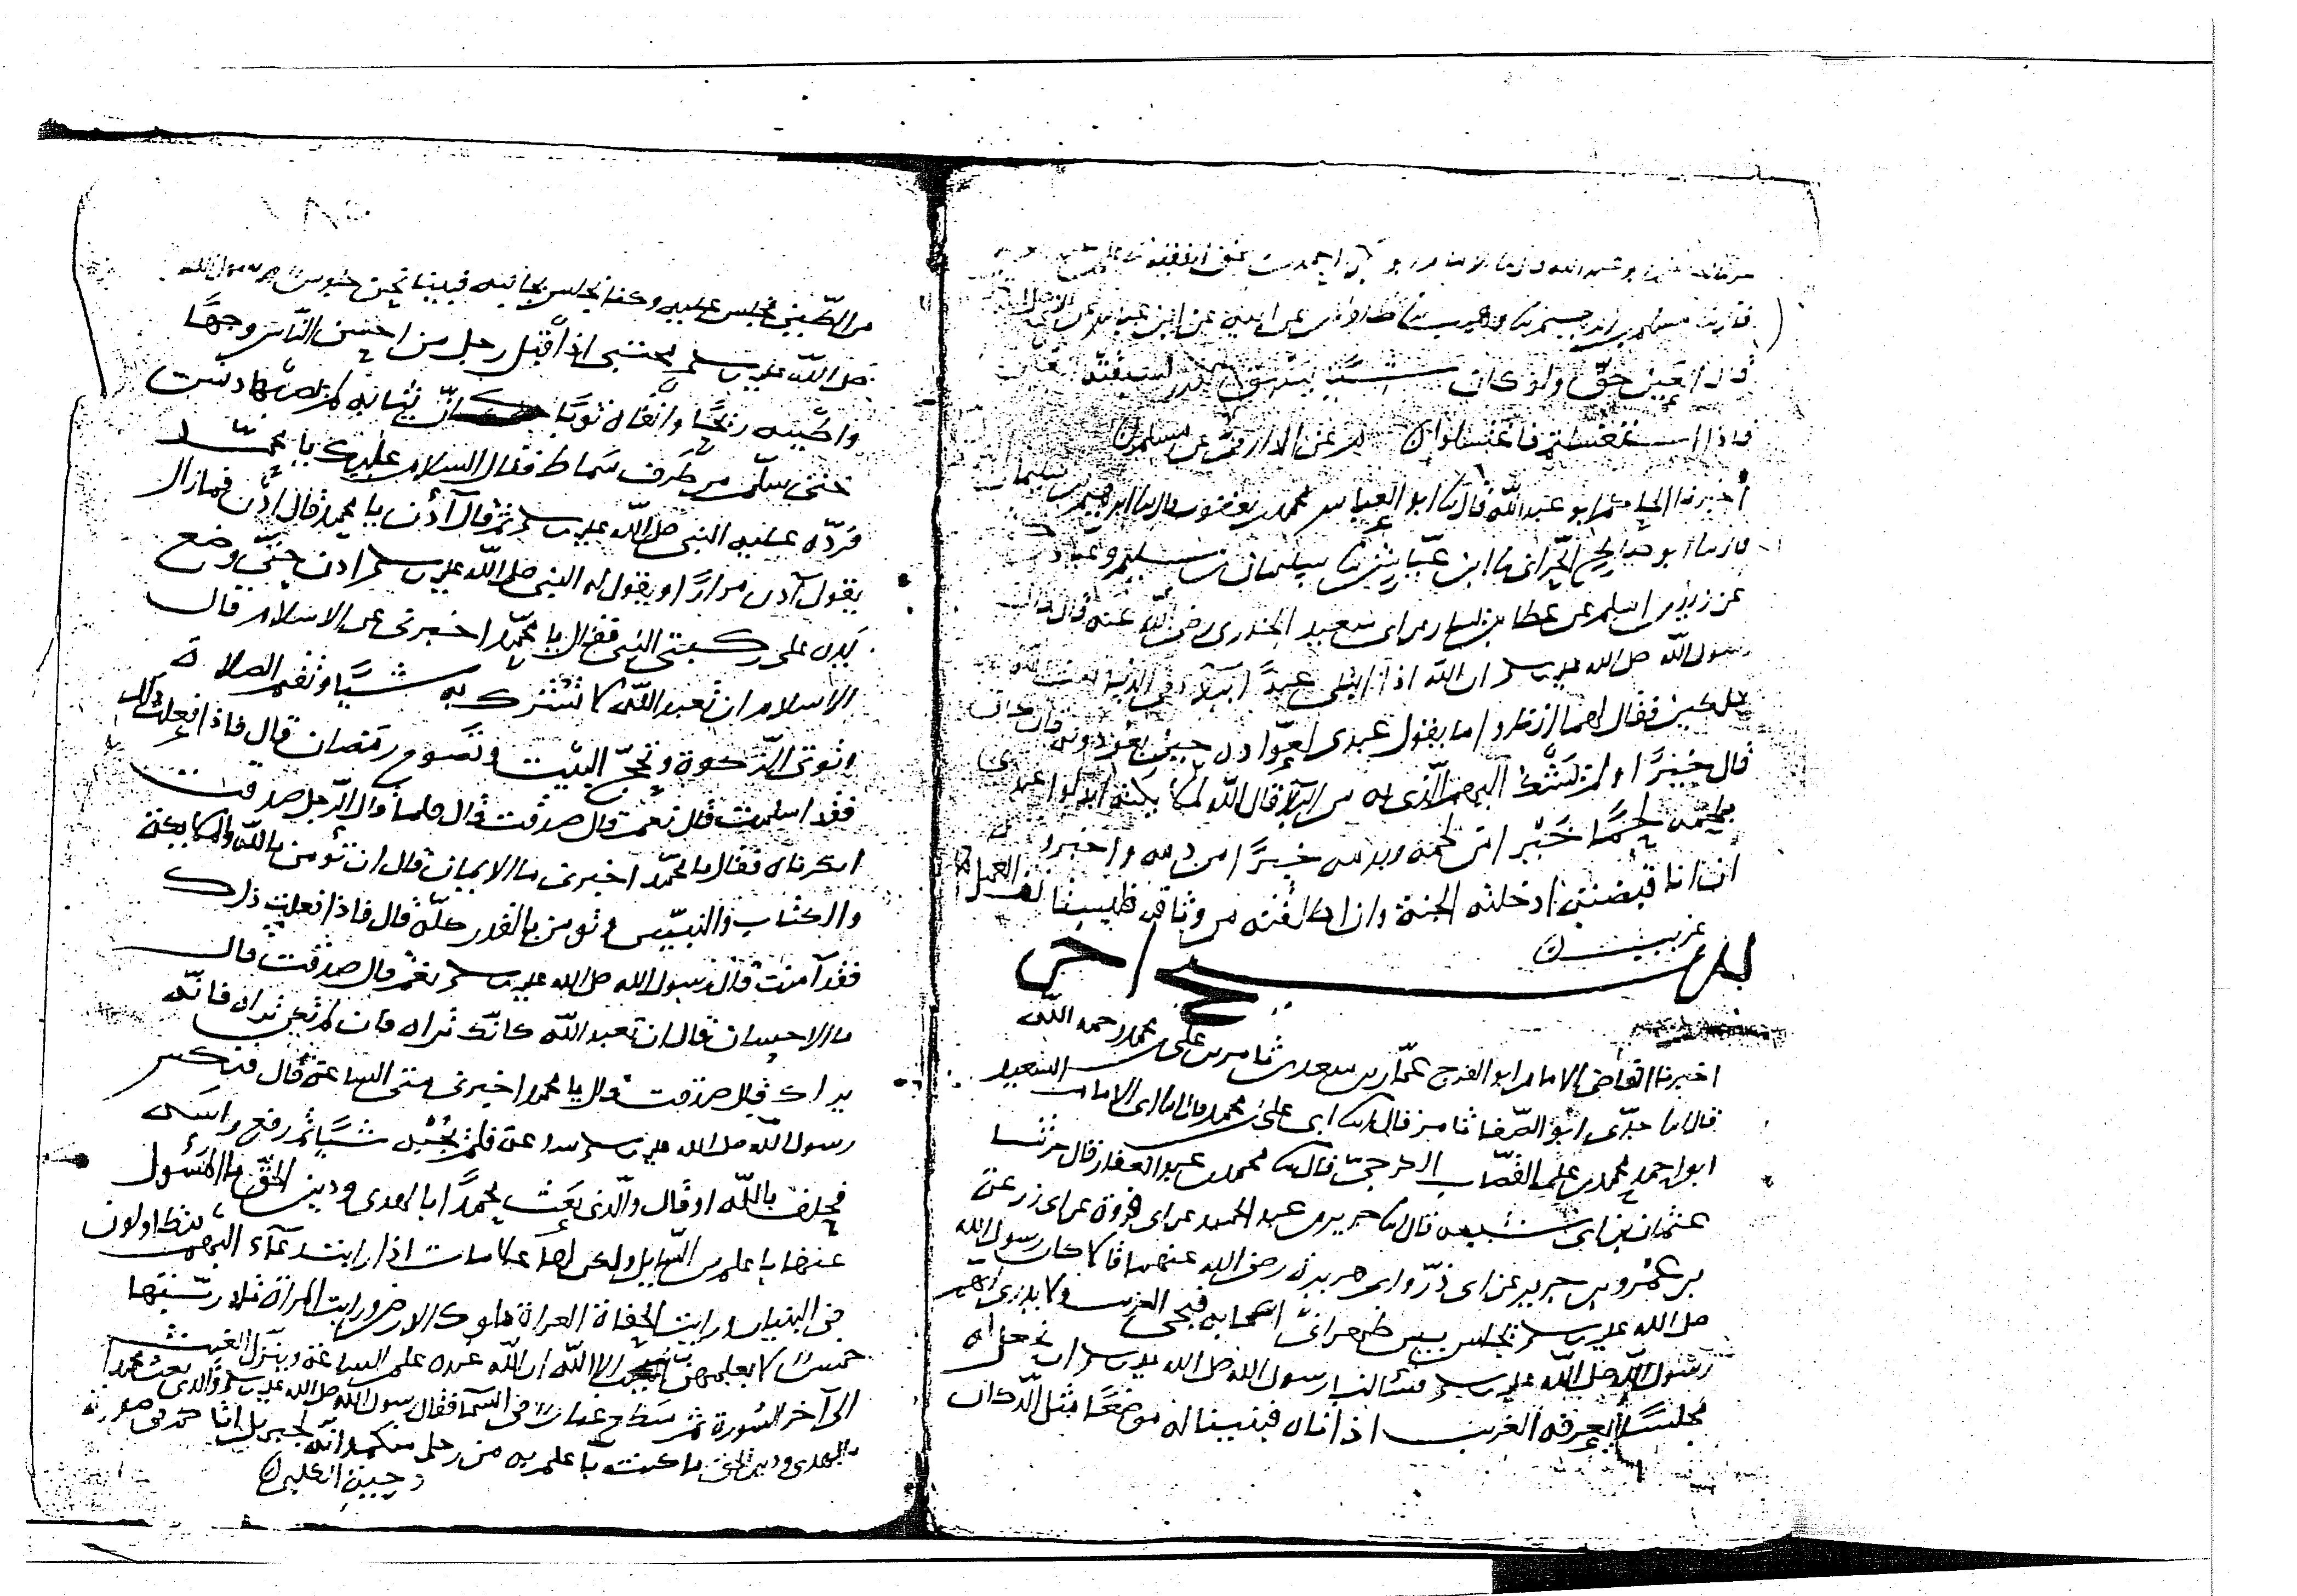 قال العين حق ولو كان شيء يسبق القدر لسبقته
فاذا استغسلتم فاغتسلوا عن الدارمي عن مسلم
أخبرنا الحاكم ابو عبد الله قال ثنا ابو العباس محمد بن يعقوب قال ثنا ابرهيم بن سليمان
عن زيد بن اسلم عن عطا بن يسار عن ابي سعيد الخدري رضي الله عنه قال قال
رسول الله صلى الله عليه وسلم ان الله اذا ابتلى عبدا
ملكين فقال لهما انظروا ما يقول عبدي لعواده حين يعودونه فان كان
قال خيرا ولم يشتك اليهم الذي به من البلا قال الله لملائكته ابدلوا عبدي
بلحمه لحما خيرا من لحمه وبدمه خيرا من دمه واخبروه
أن انا قبضته ادخلته الجنة وان انا اطلقته من وثاقه فليستانف العمل
غريب
شيخ اخر
اخبرنا القاضي الامام ابو الفرج عمار بن سعد بن ثامر بن علي بن محمد رحمه الله
قال انا جدي ابو الصفا ثامر قال انا ابي علي بن محمد قال انا ابي الامام السعيد
ابو احمد محمد بن علي القصاب الكرجي قال ثنا محمد بن عبد الغفار قال حدثنا
عثمان بن ابي شيبة قال ثنا جرير بن عبد الحميد عن ابي فروة عن ابي زرعة
بن عمرو بن جرير عن ابي ذر وابي هريرة رضي الله عنهما قالا كان رسول الله
صلى الله عليه وسلم يجلس بين ظهراني اصحابه فيجي الغريب ولا يدري ايهم
رسول الله صلى الله عليه وسلم فسألنا رسول الله صلى الله عليه وسلم ان نجعل له
مجلسا يعرفه الغريب اذا اتاه فبنينا له موضعا مثل الدكان
من الطين يجلس عليه وكنا نجلس بجانبيه فبينا نحن جلوس ورسول الله
صلى الله عليه وسلم محتبي اذ اقبل رجل من احسن الناس وجها
واطيبه ريحا وانقاه ثوبا كان ثيابه لم يصبها دنس
حتى سلم من طرف سماط فقال السلام عليك يا محمد
فرد عليه النبي صلى الله عليه وسلم ثم قال آدن يا محمد قال ادن فما زال
يقول آدن مرارا ويقول له النبي صلى الله عليه وسلم ادن حتى وضع
يده على ركبتي النبي فقال يا محمد اخبرني عن الاسلام قال
الاسلام ان تعبد الله لا تشرك به شيئا وتقيم الصلاة
وتوتي الزكوة وتحج البيت وتصوم رمضان قال فاذا فعلت ذلك
فقد اسلمت قال نعم قال صدقت قال فلما قال الرجل صدقت
انكرناه فقال يا محمد اخبرني ما الايمان قال ان تؤمن بالله والملايكة
والكتاب والنبيين وتومن بالقدر كله قال فاذا فعلت ذلك
فقد آمنت قال رسول الله صلى الله عليه وسلم نعم قال صدقت قال
ما الاحسان قال ان تعبد الله كانك تراه فان لم تكن تراه فانه
يراك قال صدقت قال يا محمد اخبرني متى الساعة قال فنكس
رسول الله صلى الله عليه وسلم ساعة فلم يجبه شيئا ثم رفع راسه
فحلف بالله او قال والذي بعث محمدا بالهدى ودين الحق ما المسؤل
عنها باعلم من السايل ولكن لها علامات اذا رايت رعاء البهم يتطاولون
في البنيان ورايت الحفاة العراة ملوك الارض ورايت المراة تلد ربتها
خمس لا يعلمهن الا الله ان الله عنده علم الساعة وينزل الغيث
الى آخر السورة ثم سطع غبار في السما فقال رسول الله صلى الله عليه وسلم والذي بعث محمدا
بالهدى ودين الحق ما كنت باعلم به من رجل منكم وانه لجبريل اتاكم في صورة
دحية الكلبي